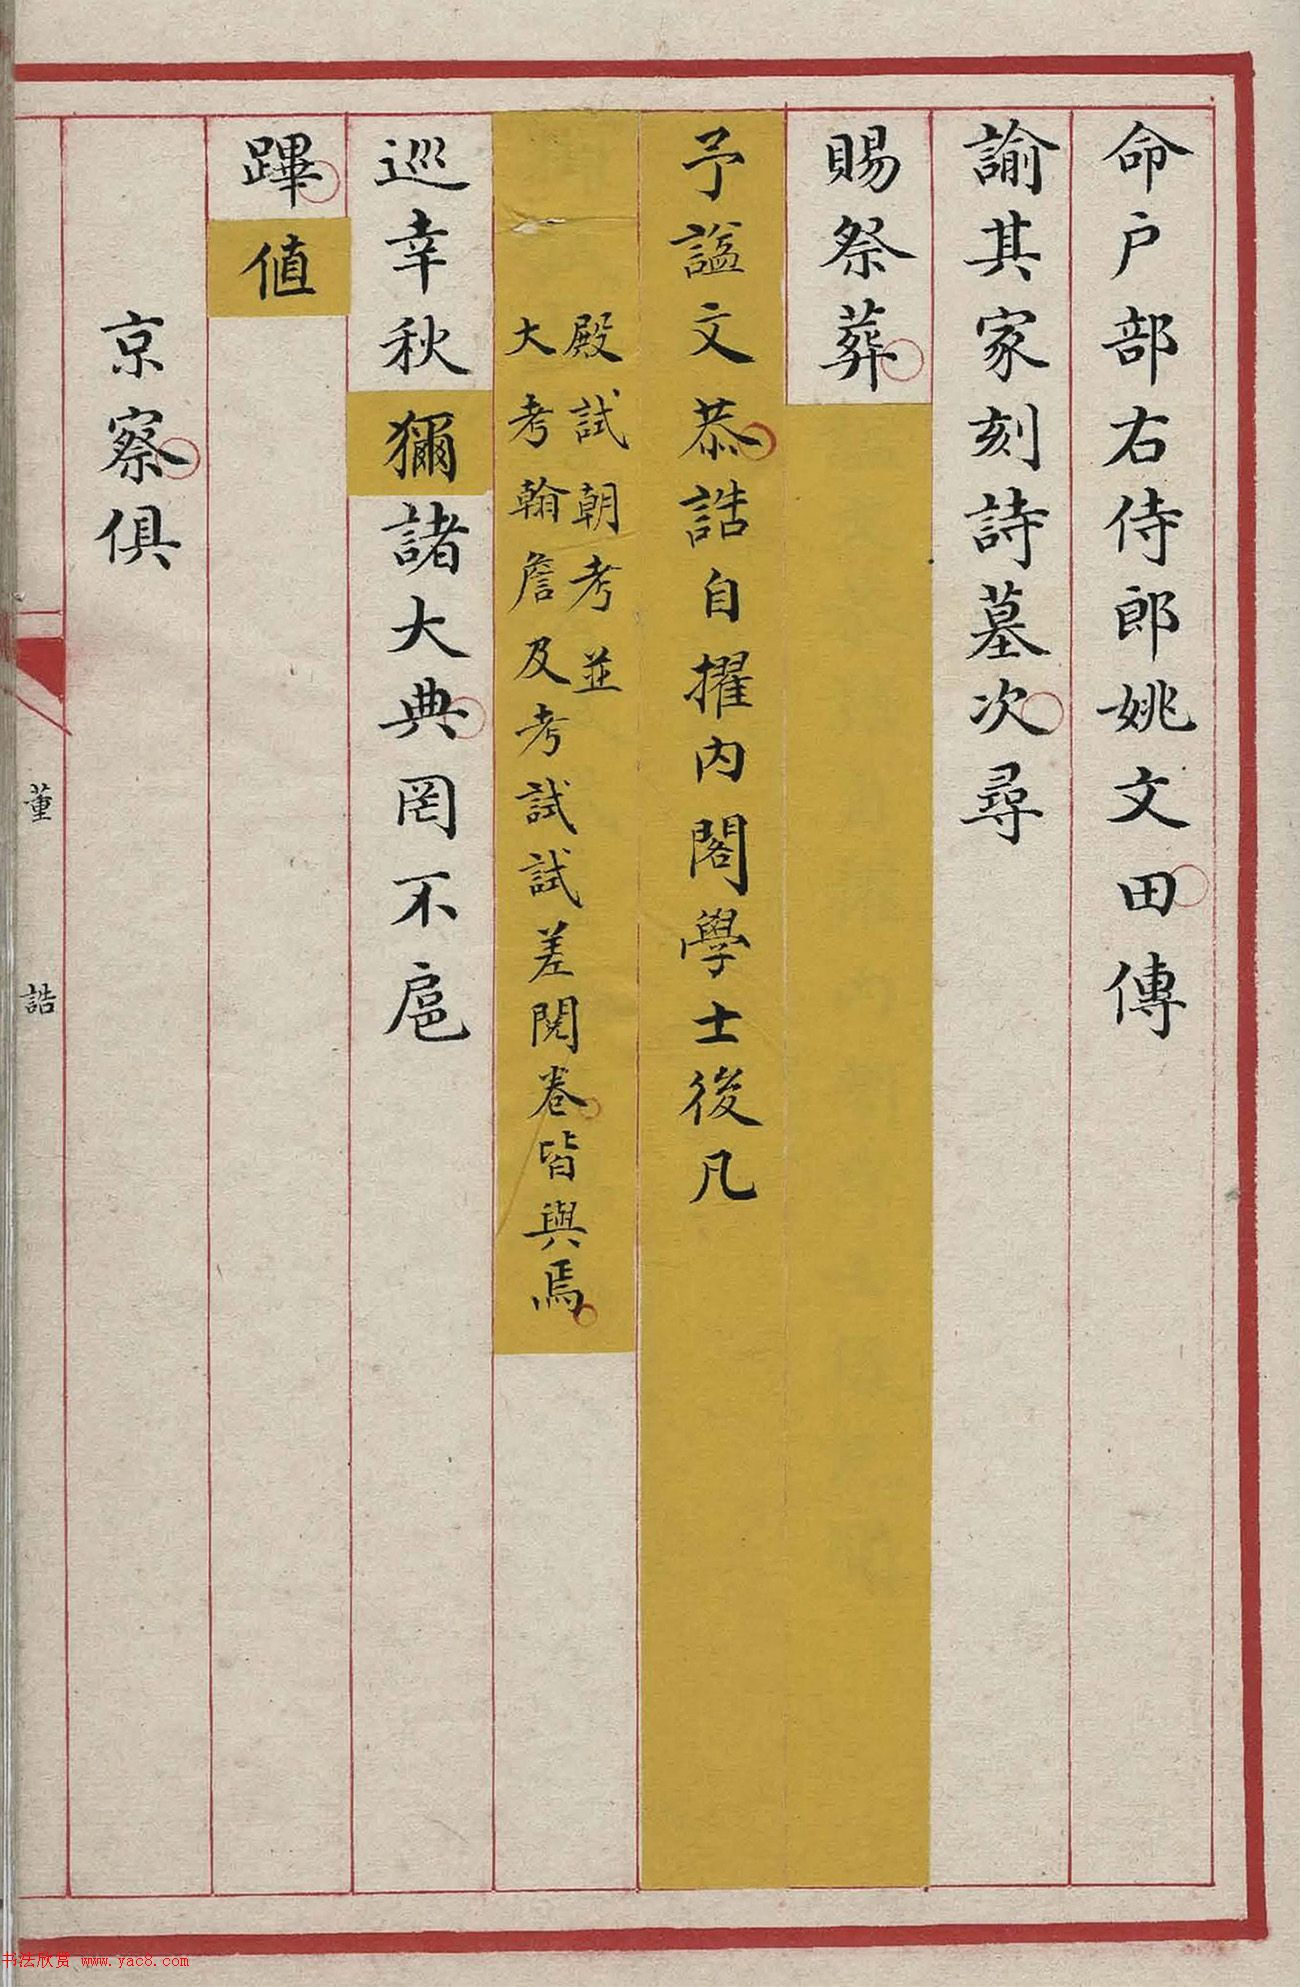 命户部右侍郎姚文田傳
諭其家刻詩墓次尋
賜祭葬
予謚文恭誥自擢内閣學士後凡
殿試朝考並
大考翰詹及考試試差閱卷皆與焉
巡幸秋獮諸大典罔不扈
蹕值
京察俱
董誥
书法欣赏 www.yac8.com